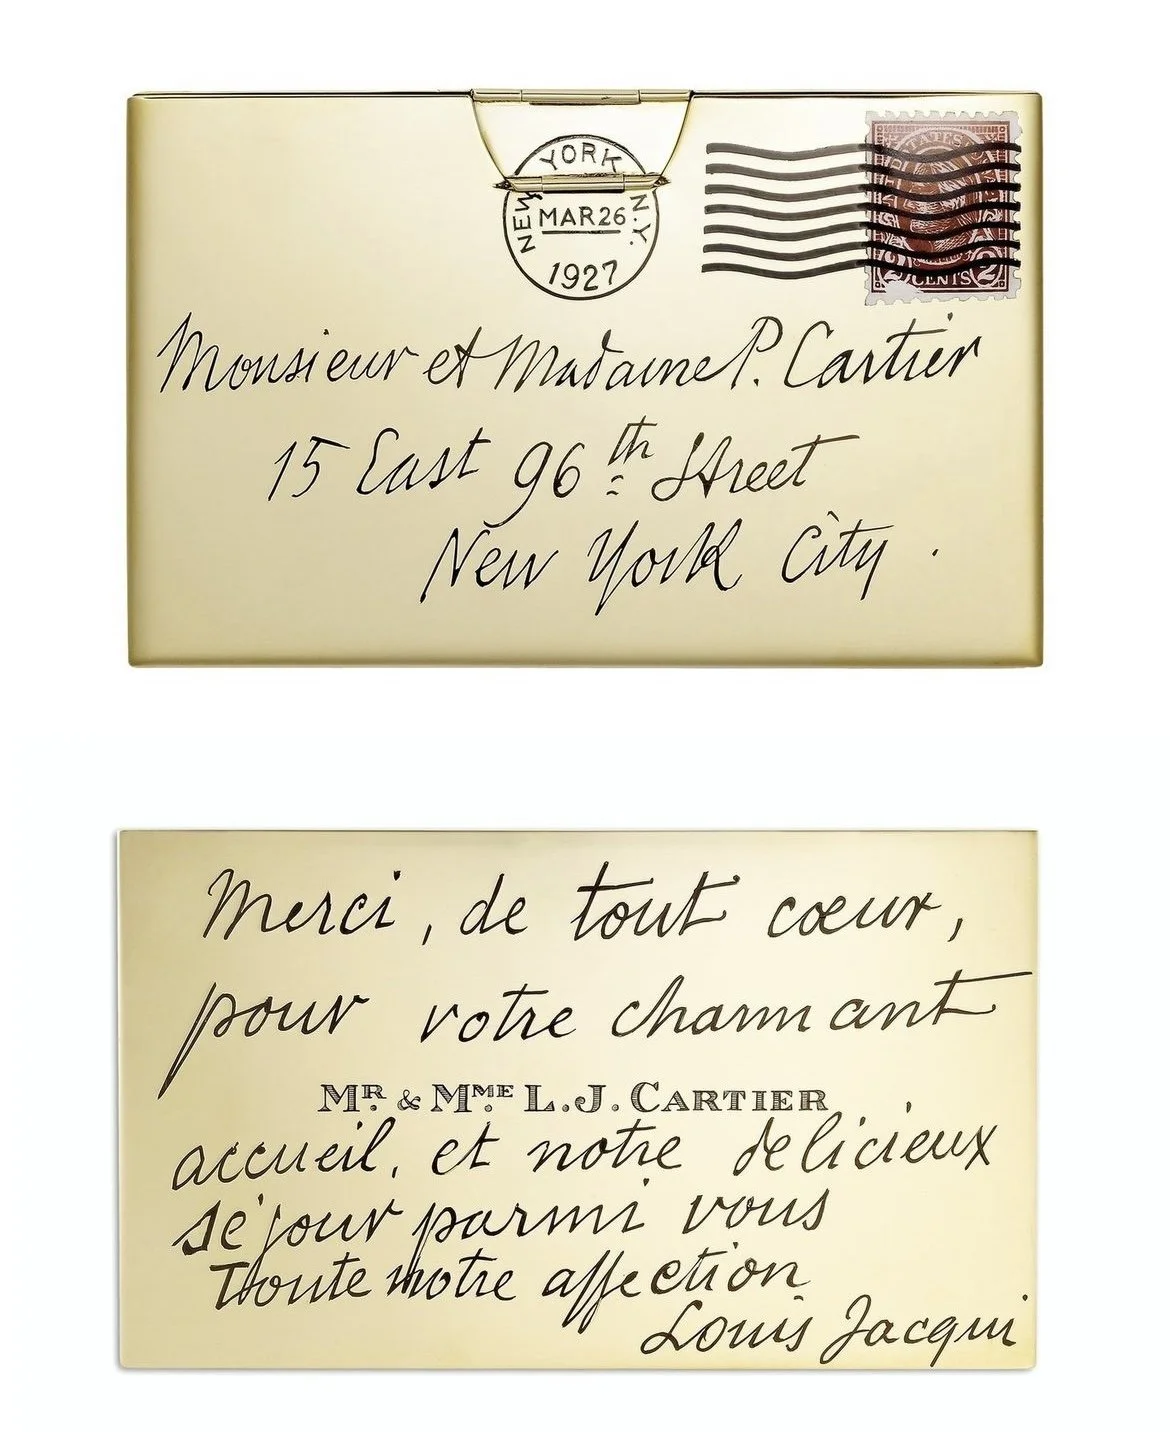 NEW YORK N.Y.
MAR 26
1927
UNITED STATES
2 CENTS 2
Monsieur et Madame P. Cartier
15 East 96th Street
New York City.
Merci, de tout cœur,
pour votre charmant
MR. & MME. L.J. CARTIER
accueil, et notre delicieux
séjour parmi vous
Toute notre affection
Louis Jacqui